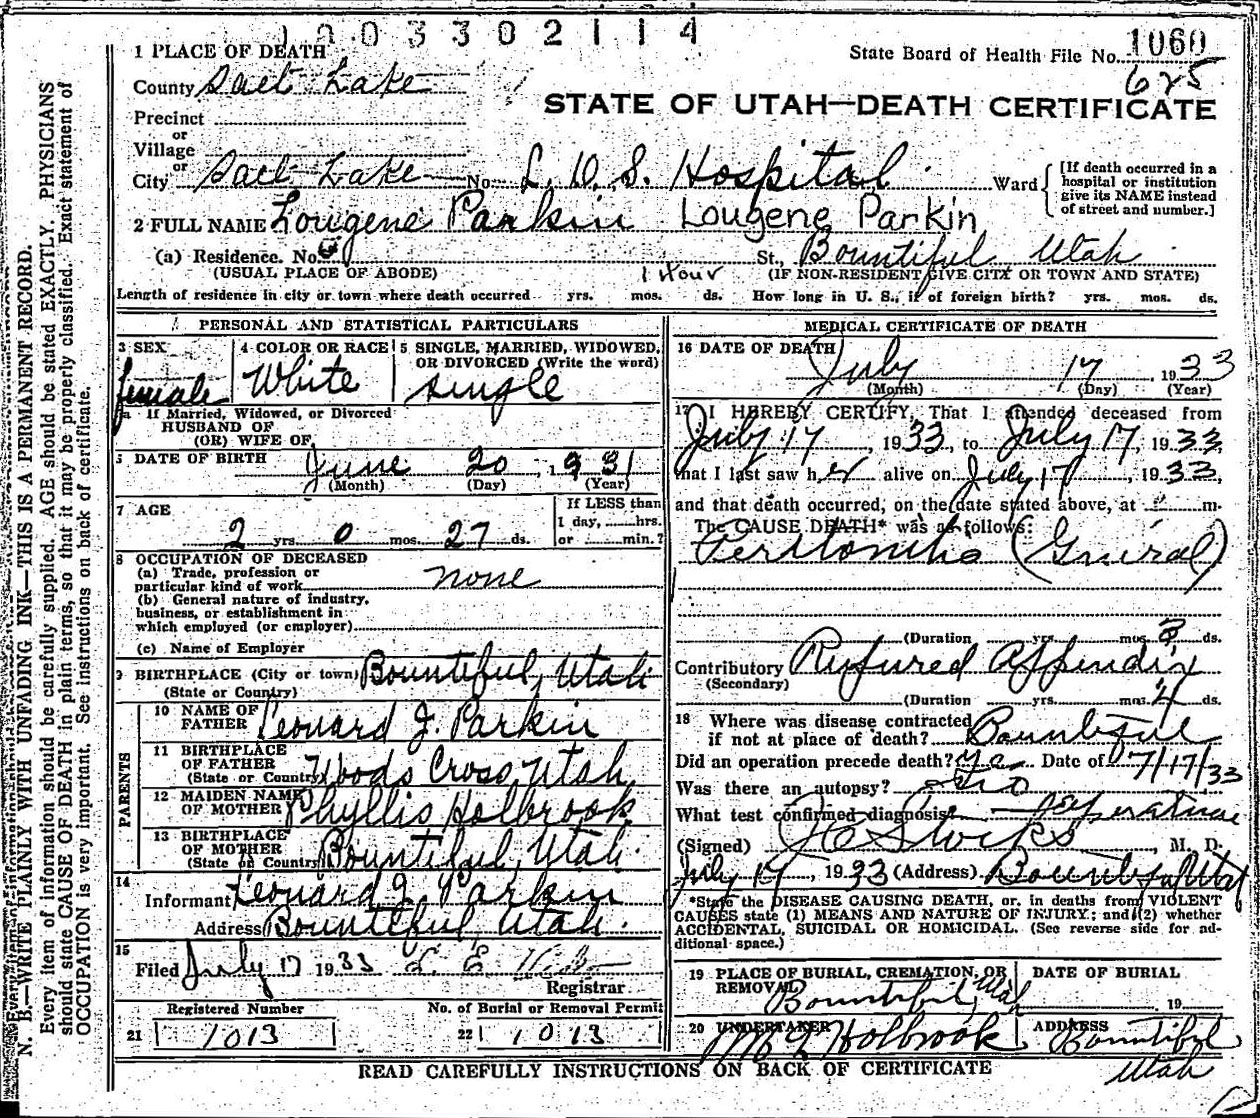 1003302114
1 PLACE OF DEATH
State Board of Health File No. 1060
625
County Salt Lake
STATE OF UTAH—DEATH CERTIFICATE
Precinct
or
Village
or
City Salt Lake No. L. D. S. Hospital Ward
[If death occurred in a hospital or institution give its NAME instead of street and number.]
2 FULL NAME Lougene Parkin Lougene Parkin
(a) Residence. No. St., Bountiful Utah
(USUAL PLACE OF ABODE) (IF NON-RESIDENT GIVE CITY OR TOWN AND STATE)
1 Hour
Length of residence in city or town where death occurred yrs. mos. ds. How long in U. S., if of foreign birth? yrs. mos. ds.
PERSONAL AND STATISTICAL PARTICULARS
3 SEX 4 COLOR OR RACE 5 SINGLE, MARRIED, WIDOWED, OR DIVORCED (Write the word)
female White single
If Married, Widowed, or Divorced
HUSBAND OF
(OR) WIFE OF
DATE OF BIRTH June 20 1931
(Month) (Day) (Year)
7 AGE If LESS than
1 day, hrs.
2 yrs. 0 mos. 27 ds. or min.?
8 OCCUPATION OF DECEASED
(a) Trade, profession or
particular kind of work none
(b) General nature of industry,
business, or establishment in
which employed (or employer)
(c) Name of Employer
9 BIRTHPLACE (City or town) Bountiful, Utah
(State or Country)
PARENTS
10 NAME OF
FATHER Leonard J. Parkin
11 BIRTHPLACE
OF FATHER
(State or Country) Woods Cross Utah
12 MAIDEN NAME
OF MOTHER Phyllis Holbrook
13 BIRTHPLACE
OF MOTHER
(State or Country) Bountiful, Utah.
14
Informant Leonard J. Parkin
Address Bountiful, Utah.
15
Filed July 17 1933 L. E.
Registrar
Registered Number No. of Burial or Removal Permit
21 1013 22 1013
MEDICAL CERTIFICATE OF DEATH
16 DATE OF DEATH
July 17, 1933
(Month) (Day) (Year)
17 I HEREBY CERTIFY, That I attended deceased from
July 17, 1933, to July 17, 1933,
that I last saw her alive on July 17, 1933,
and that death occurred, on the date stated above, at m.
The CAUSE DEATH* was as follows:
Peritonitis (General)
(Duration yrs. mos. 3 ds.
Contributory Rufured Appendix
(Secondary)
(Duration yrs. mos. 4 ds.
18 Where was disease contracted
if not at place of death? Bountiful
Did an operation precede death? yes Date of 7/17/33
Was there an autopsy? no
What test confirmed diagnosis operation
(Signed) J C Stocks, M. D.
July 17, 1933 (Address) Bountiful Utah
*State the DISEASE CAUSING DEATH, or, in deaths from VIOLENT
CAUSES state (1) MEANS AND NATURE OF INJURY; and (2) whether
ACCIDENTAL, SUICIDAL OR HOMICIDAL. (See reverse side for ad-
ditional space.)
19 PLACE OF BURIAL, CREMATION, OR
REMOVAL DATE OF BURIAL
Bountiful, Utah 19
20 UNDERTAKER ADDRESS
Holbrook Bountiful
Utah
READ CAREFULLY INSTRUCTIONS ON BACK OF CERTIFICATE
N. B.—WRITE PLAINLY WITH UNFADING INK—THIS IS A PERMANENT RECORD.
Every item of information should be carefully supplied. AGE should be stated EXACTLY. PHYSICIANS
should state CAUSE OF DEATH in plain terms, so that it may be properly classified. Exact statement of
OCCUPATION is very important. See instructions on back of certificate.